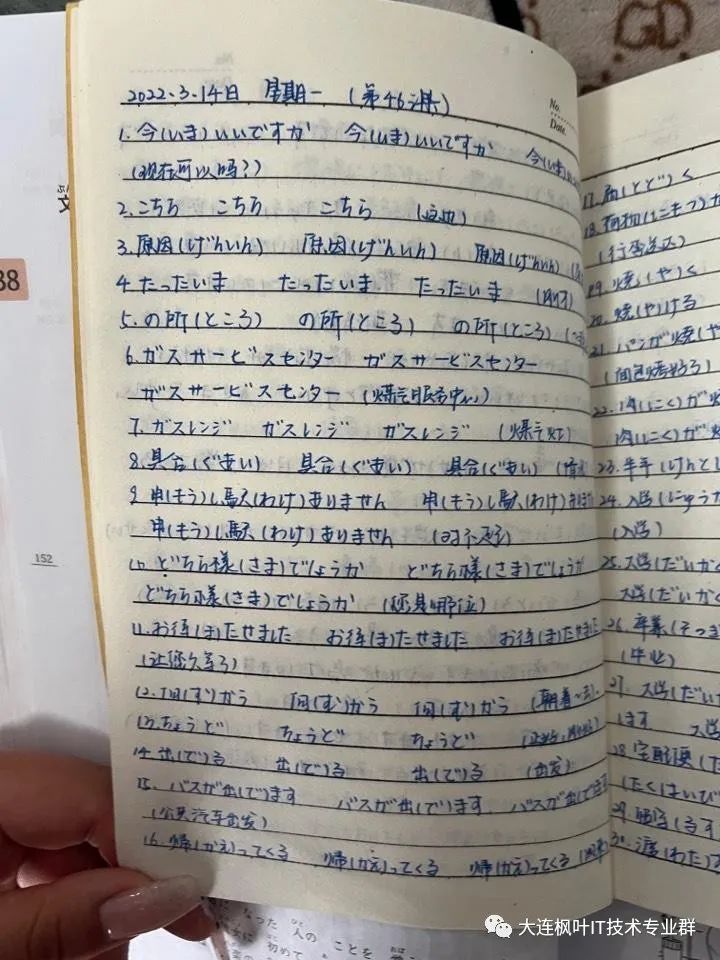 2022.3.14日 星期一 (第46課)
No.
Date.
1.今(いま)いいですか 今(いま)いいですか 今(いま)
(现在可以吗?)
2.こちら こちら こちら (这边)
3.原因(げんいん) 原因(げんいん) 原因(げんいん)
4.たったいま たったいま たったいま (刚才)
5.の所(ところ) の所(ところ) の所(ところ)
6.ガスサービスセンター ガスサービスセンター
ガスサービスセンター (煤气服务中心)
7.ガスレンジ ガスレンジ ガスレンジ (煤气灶)
8.具合(ぐあい) 具合(ぐあい) 具合(ぐあい)
9.申(もう)し駄(わけ)ありません 申(もう)し駄(わけ)ありません
申(もう)し駄(わけ)ありません (对不起)
10.どちら様(さま)でしょうか どちら様(さま)でしょうか
どちら様(さま)でしょうか (您是哪位)
11.お待(ま)たせました お待(ま)たせました お待(ま)たせました
(让您久等了)
12.向(む)かう 向(む)かう 向(む)かう (朝着~去)
13.ちょうど ちょうど ちょうど
14.出(で)る 出(で)る 出(で)る (出发)
15.バスが出(で)ます バスが出(で)ます バスが出(で)ます
(公共汽车出发)
16.帰(かえ)ってくる 帰(かえ)ってくる 帰(かえ)ってくる
17.届(とど)く
18.荷物(にもつ)が
(行李送达)
19.焼(や)く
20.焼(や)ける
21.パンが焼(や
(面包烤好了)
22.肉(にく)が焼
肉(にく)が焼
23.半年(はんとし
24.入学(にゅうが
(入学)
25.大学(だいがく
大学(だいがく
26.卒業(そつぎ
(毕业)
27.大学(だい
ます 大学
28.宅配便(た
(たくはいび
29.留守(るす
30.渡(わた)
38
152
なった 人の ことを
初めて
大连枫叶IT技术专业群